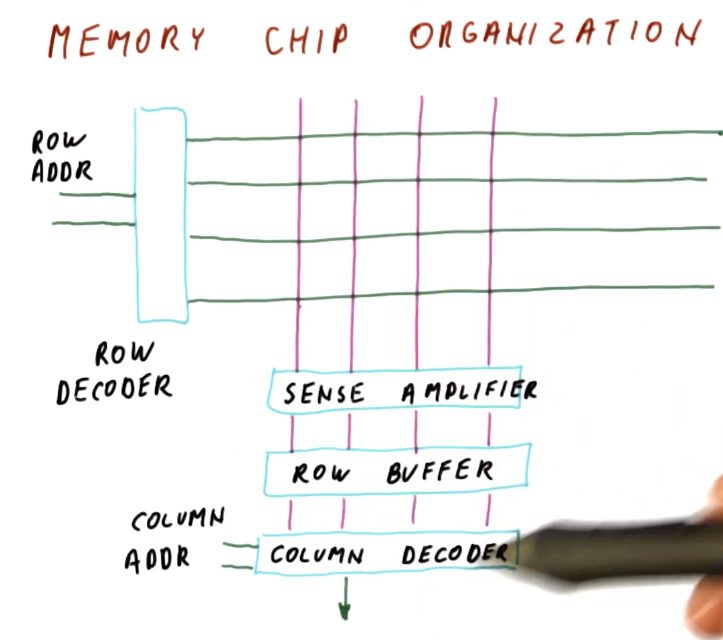 MEMORY CHIP ORGANIZATION
ROW
ADDR
ROW
DECODER
SENSE AMPLIFIER
ROW BUFFER
COLUMN
ADDR
COLUMN DECODER